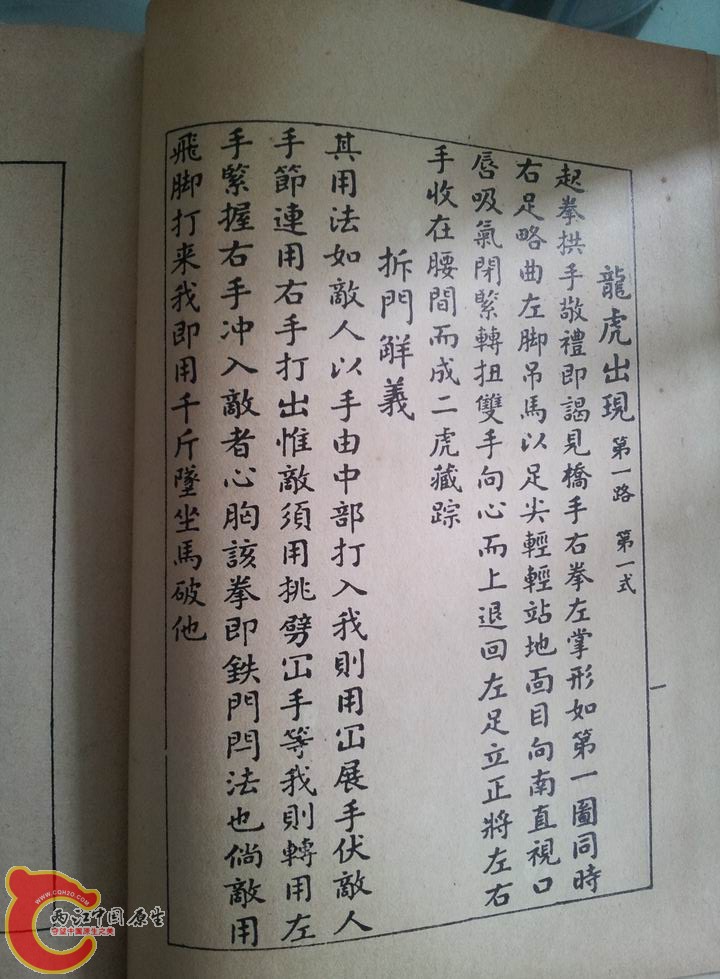 龍虎出現 第一路 第一式
起拳拱手敬禮即謁見橋手右拳左掌形如第一圖同時
右足略曲左脚吊馬以足尖輕輕站地面目向南直視口
唇吸氣閉緊轉扭雙手向心而上退回左足立正將左右
手收在腰間而成二虎藏踪
拆門解義
其用法如敵人以手由中部打入我則用冚展手伏敵人
手節連用右手打出惟敵須用挑劈冚手等我則轉用左
手緊握右手冲入敵者心胸該拳即鉄門閂法也倘敵用
飛脚打来我即用千斤墜坐馬破他
一
WWW.CQH2O.COM
两江中国原生
守望中國原生之美